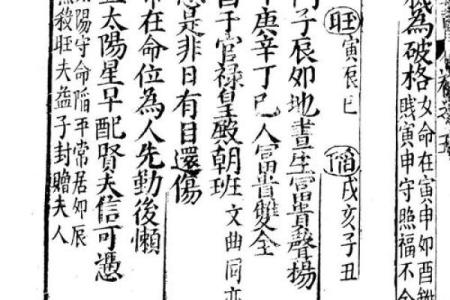 為破格
女命在寅申如酉
賤寅申守照福不
旺 寅辰巳 陷 戌亥子丑
子辰卯地晝生富貴聲揚
庚辛丁己人富貴雙全
子官祿皇殿朝班 文曲同
是非日有目還傷
在命位為人先勤後懶
太陽星早配賢夫信可憑
陽守命陷平常居卯辰
殺旺夫益子封贈夫人